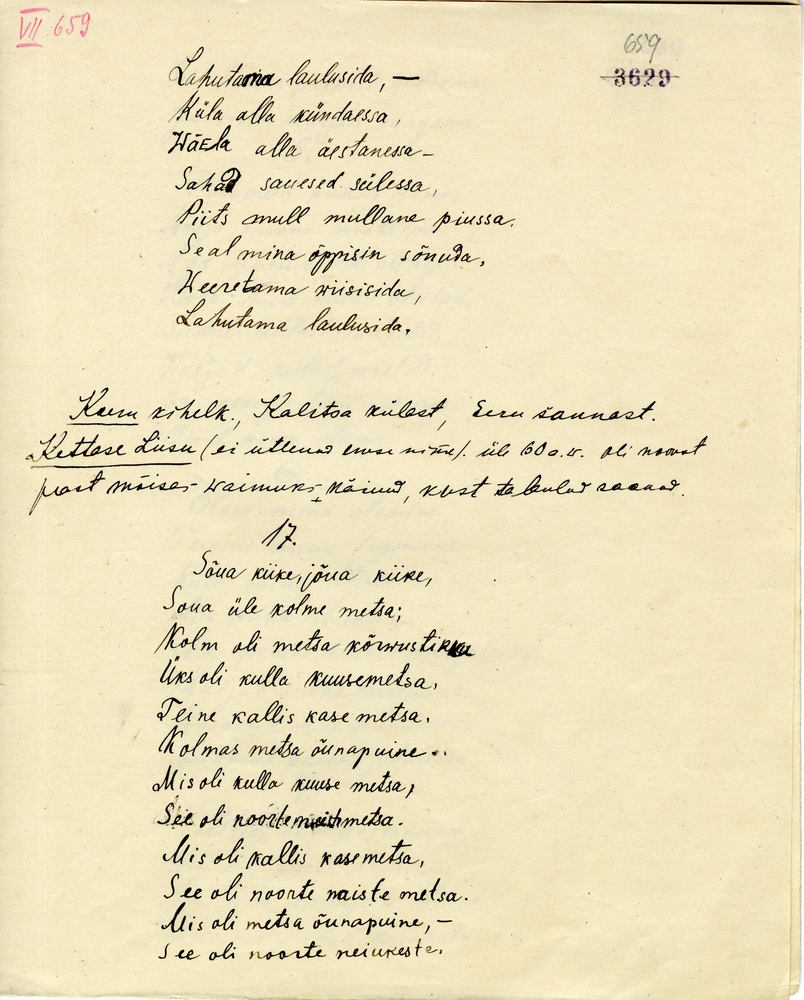 VII 659
659
3629
Lahutama laulusida, —
Küla alla kündaessa,
Wäela alla äestanessa —
Sahad sauesed sülessa,
Piits mull mullane piussa.
Seal mina õppisin sõnuda,
Weeretama wiisisida,
Lahutama laulusida.
Koeru kihelk., Kalitsa külast, Eeru saunast.
Kettase Liisu (ei ütlenud enese nime). üle 60 a. w. oli noorest
peast mõisas waimuks käinud, kust ta laulud saanud.
17.
Sõua kiike, jõua kiike,
Soua üle kolme metsa;
Kolm oli metsa kõrwustikku
Üks oli kulla kuusemetsa,
Teine kallis kase metsa.
Kolmas metsa õunapuine..
Mis oli kulla kuuse metsa,
See oli noorte meistmetsa.
Mis oli kallis kasemetsa,
See oli noorte naiste metsa.
Mis oli metsa õunapuine, —
See oli noorte neiukeste.